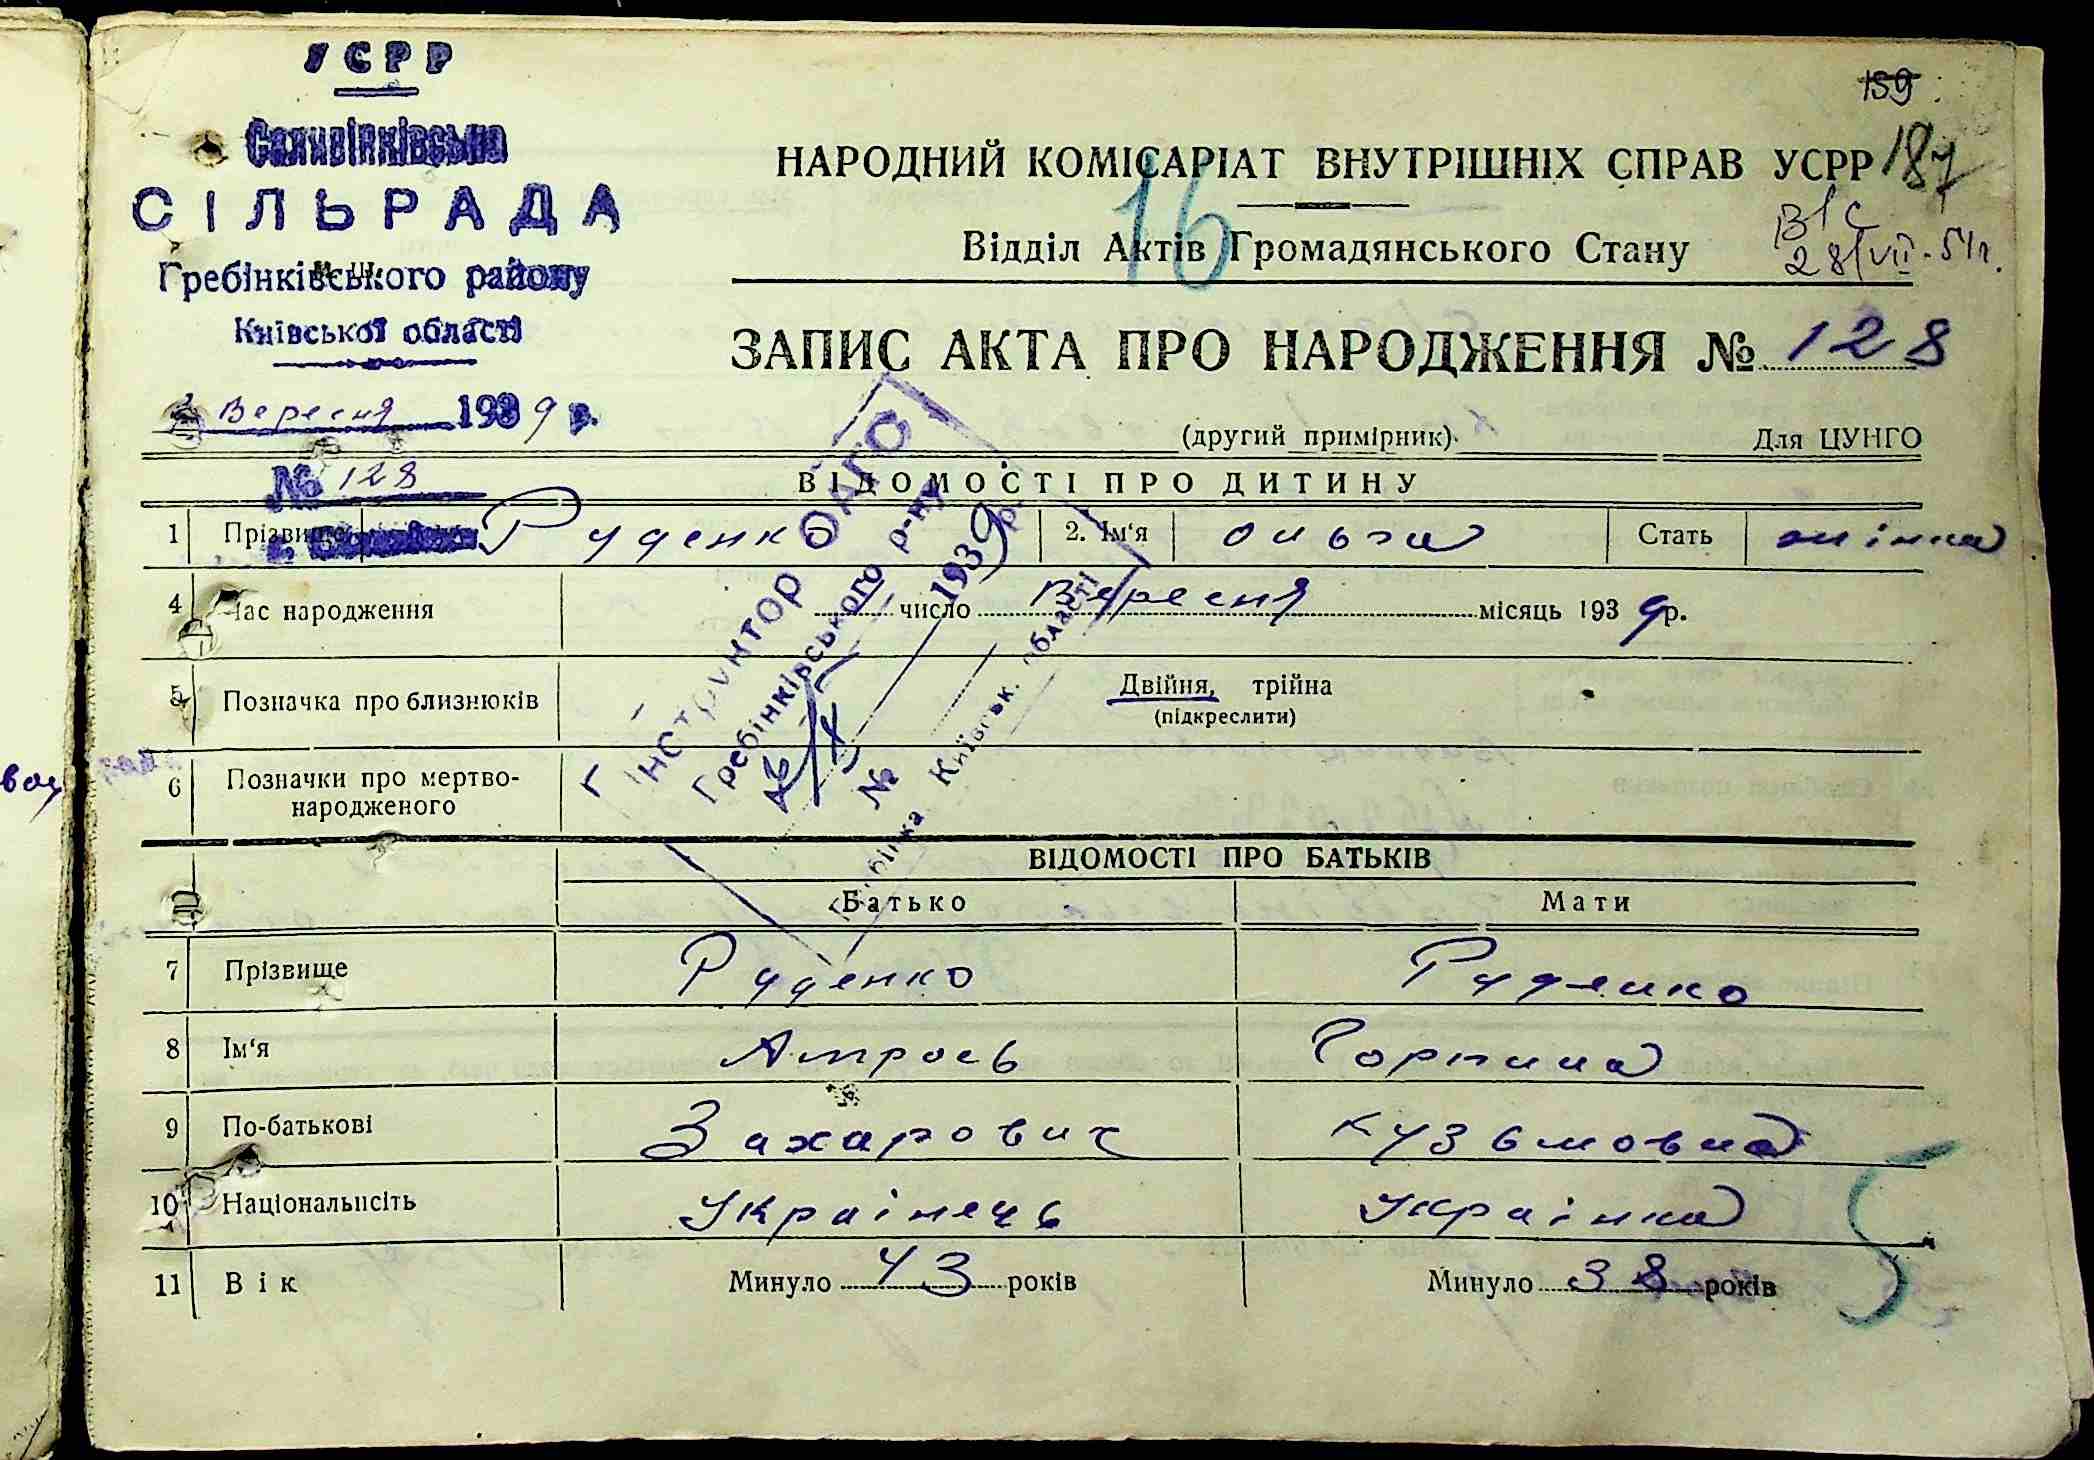 УСРР
Саливінківська
СІЛЬРАДА
Гребінківського району
Київської області
2 Вересня 1939 р.
№ 128
159
187
В/С
28/VII-51п.
16
НАРОДНИЙ КОМІСАРІАТ ВНУТРІШНІХ СПРАВ УСРР
Відділ Актів Громадянського Стану
ЗАПИС АКТА ПРО НАРОДЖЕННЯ № 128
(другий примірник)
Для ЦУНГО
ВІДОМОСТІ ПРО ДИТИНУ
1 Прізвище Руденко 2. Ім'я Ольга Стать жінка
4 Час народження число Вересня місяць 1939 р.
5 Позначка про близнюків Двійня, трійна
(підкреслити)
6 Позначки про мертво-
народженого
Інструнтор ОАГС
Гребінківського р-ну
1939 р.
№
Гребінка Київськ. області
ВІДОМОСТІ ПРО БАТЬКІВ
Батько Мати
7 Прізвище Руденко Руденко
8 Ім'я Амрось Горпина
9 По-батькові Захарович Кузьмовна
10 Національність Украінець Украінка
11 Вік Минуло 43 років Минуло 38 років